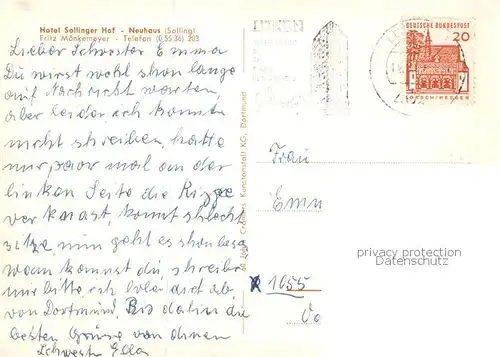 Hotel Sollinger Hof - Neuhaus (Solling)
Fritz Mönkemeyer - Telefon (0 55 36) 203
Lieber Schwester Emma
Du wirst wohl shon lange
auf Nachricht warten,
aber leider ich konnte
nicht shreiben, hatte
nur paar mal an der
linken Seite die Rippe
ver knast, konnt shlecht
sitze, nun geht es shon
wann kommst du, shreibe
mir bitte ich hole dich ab
von Dortmund, Bis dahin die
besten Grüsse von
Schwester Ella
60 Jahre Cramers Kunstanstalt KG, Dortmund
LÜNEN
DEUTSCHE BUNDESPOST
20
LORSCH/HESSEN
Frau
Emm
privacy protection
Datenschutz
1055